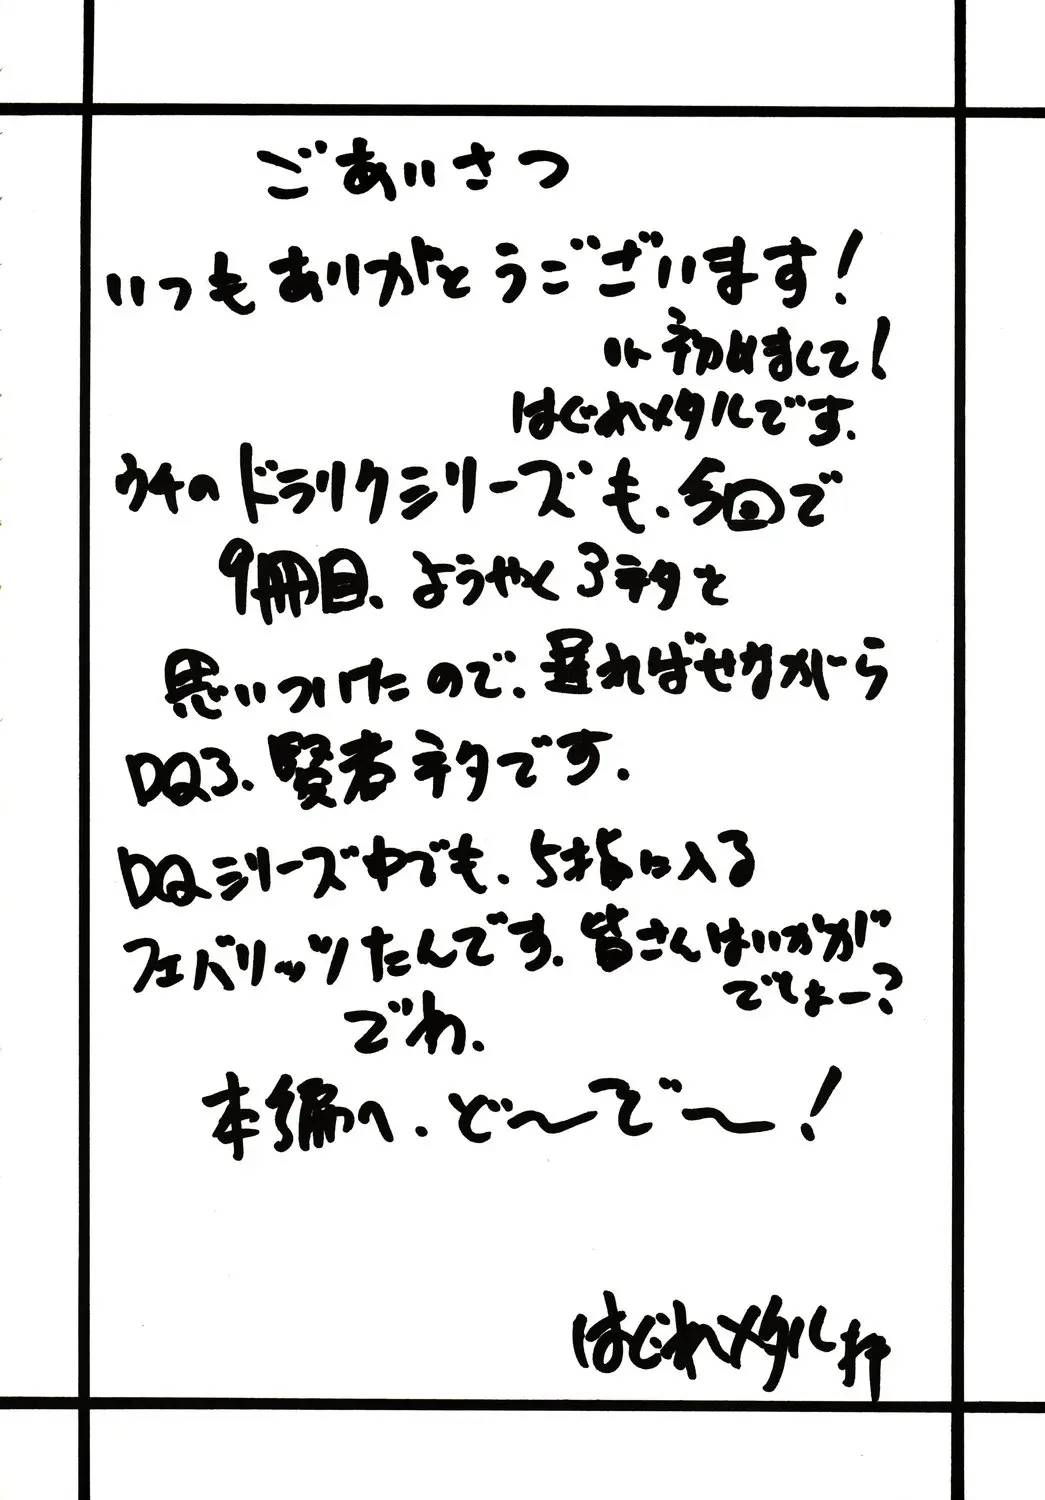 ごあいさつ
いつもありがとうございます!
初めまして!
はぐれメタルです.
ウチのドラクシリーズも、今回で
9冊目、ようやく3ネタと
思いついたので、遅ればせながら
DQ3、賢者ネタです.
DQシリーズ中でも、5指に入る
フェバリッツたんです.皆さんはいかがでしょー?
でわ.
本編へ、ど〜ぞ〜!
はぐれメタル拝